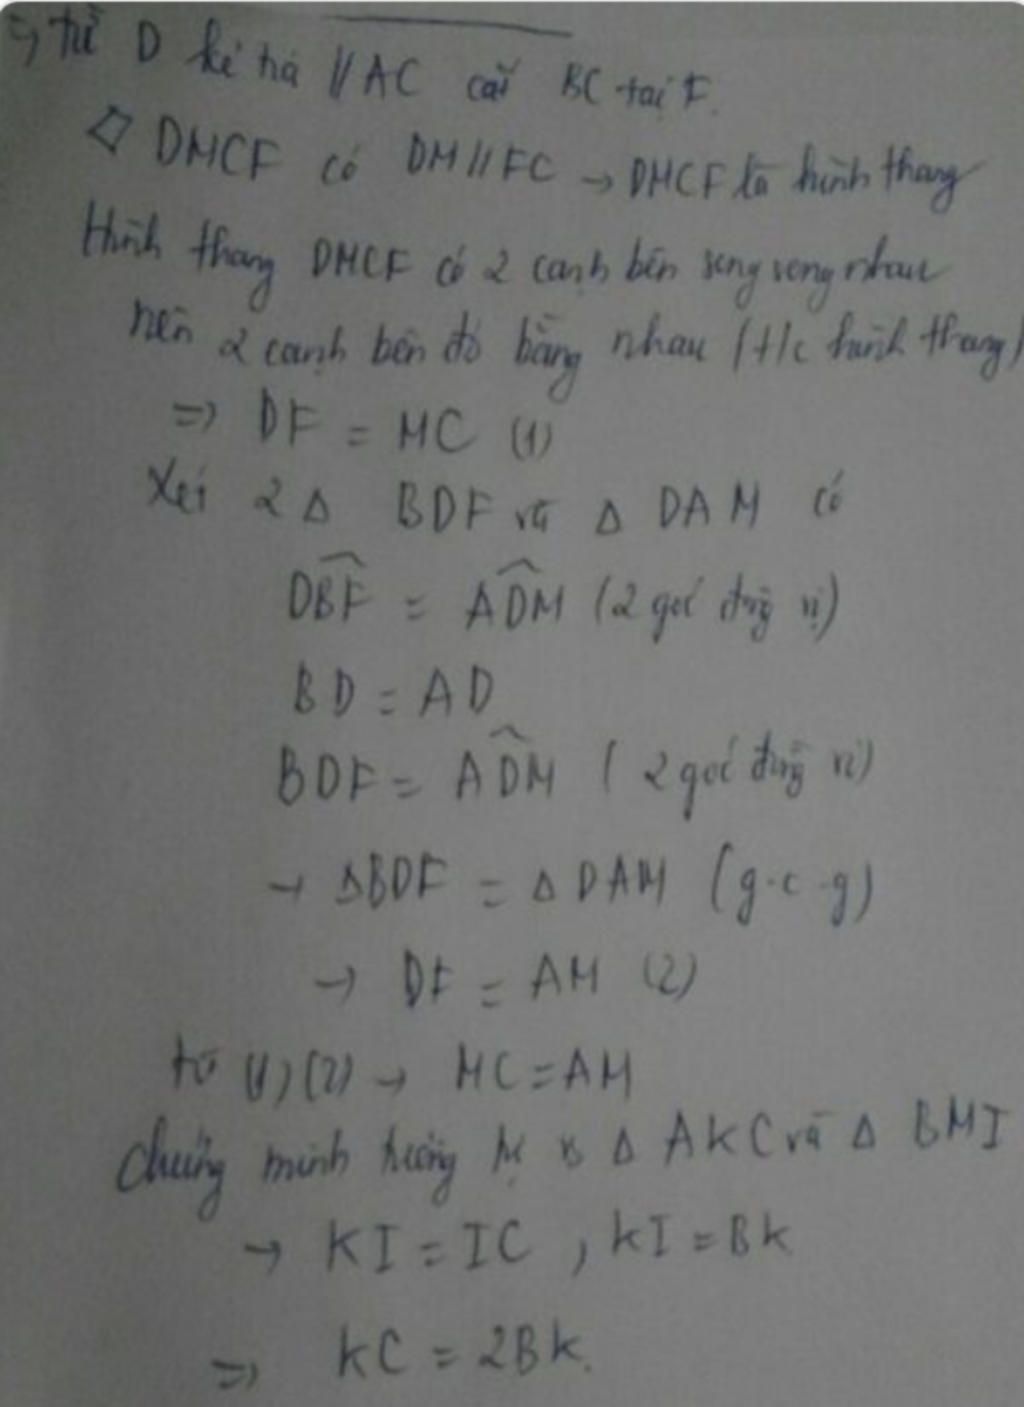 => từ D kẻ tia // AC cắt BC tại F.
◇ DMCF có DM // FC → DMCF là hình thang
Hình thang DMCF có 2 cạnh bên song song nhau
nên 2 cạnh bên đó bằng nhau (t/c hình thang)
=> DF = MC (1)
Xét 2 Δ BDF và Δ DAM có
DBF = ADM (2 góc đồng vị)
BD = AD
BDF = ADM (2 góc đồng vị)
→ ΔBDF = Δ DAM (g.c.g)
→ DF = AM (2)
từ (1)(2) → MC = AM
chứng minh tương tự Δ AKC và Δ BMI
→ KI = IC, KI = BK
=> KC = 2BK.